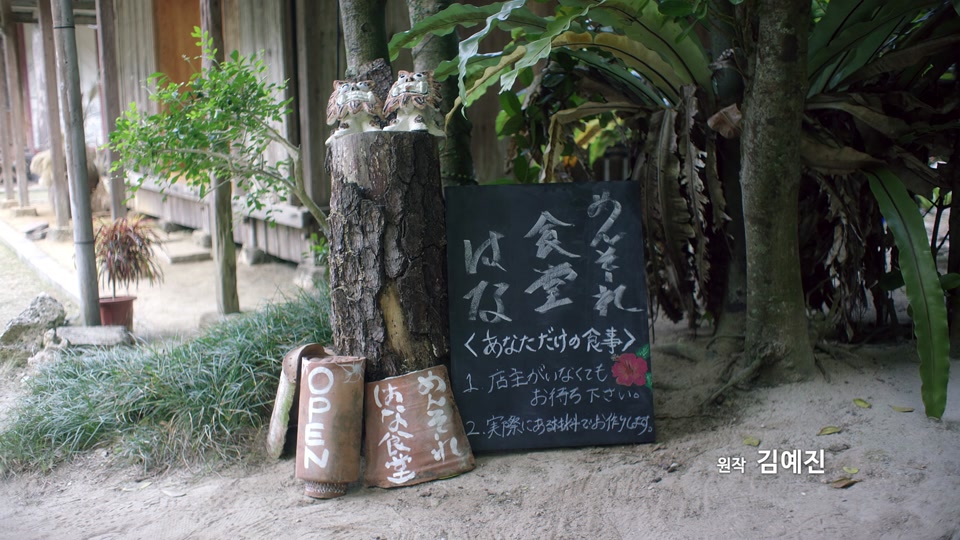 めんそれ
食堂
はな
<あなただけの食事>
1. 店主がいなくても
お待ち下さい。
2. 実際にある材料でお作りします。
OPEN
めんそれ
はな食堂
원작 김예진